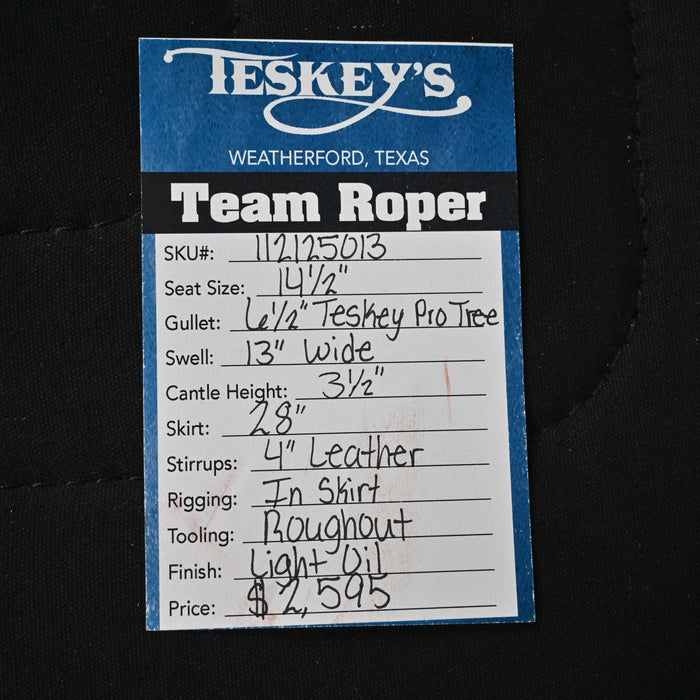 TESKEY'S
WEATHERFORD, TEXAS
Team Roper
SKU#: 112125013
Seat Size: 14 1/2"
Gullet: 6 1/2" Teskey Pro Tree
Swell: 13" Wide
Cantle Height: 3 1/2"
Skirt: 28"
Stirrups: 4" Leather
Rigging: In Skirt
Tooling: Roughout
Finish: Light Oil
Price: $2,595